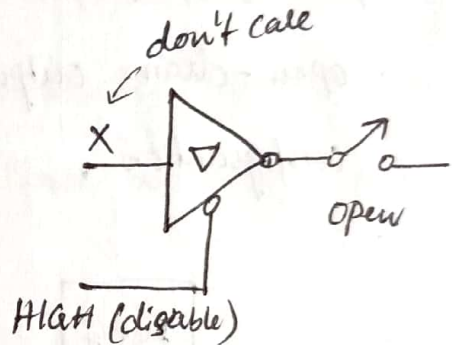 don't care
X
open
HIGH (disable)